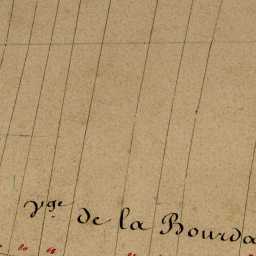 vge de la Bourda